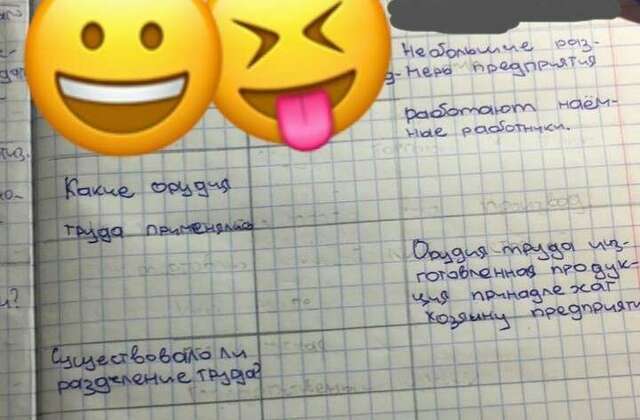 Небольшие раз-
меры предприятия
работают наём-
ные работники.
Какие орудия
труда применялись
Орудия труда из-
готовленная продук-
ция принадлежат
хозяину предприяти
Существовало ли
разделение труда?